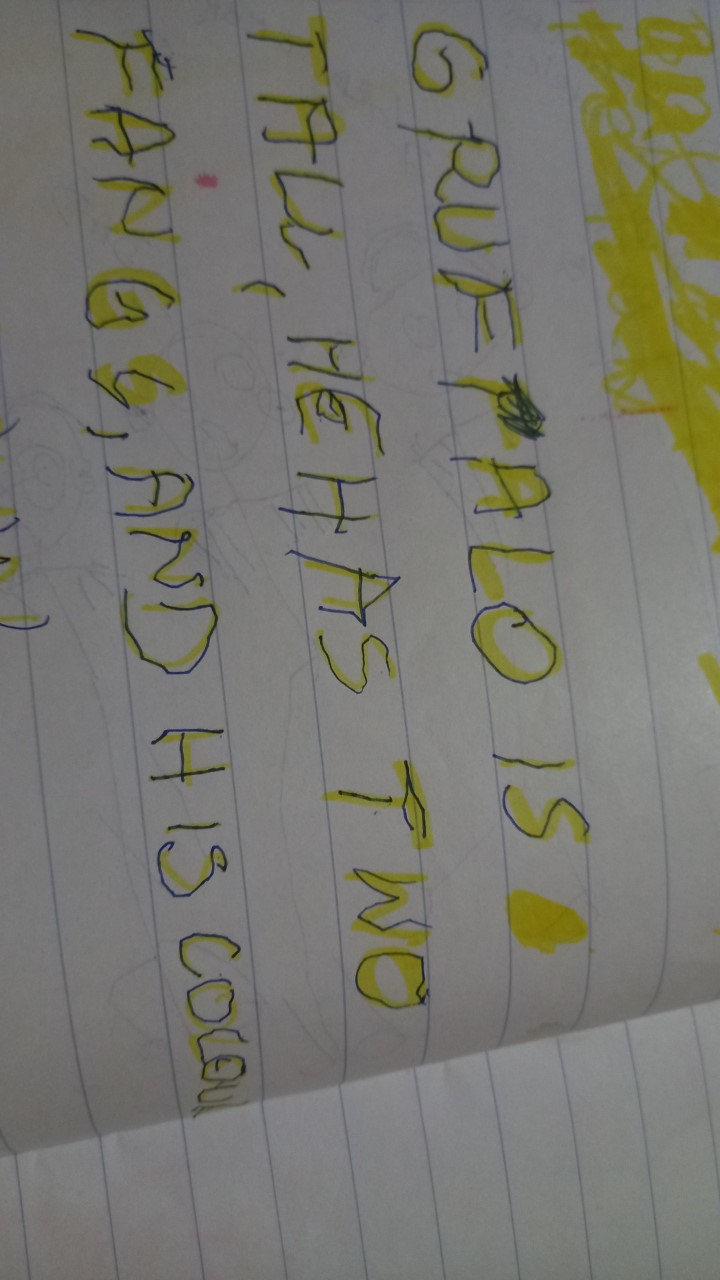 GRUFFALO IS
TALL, HE HAS TWO
FANGS, AND HIS COLOU